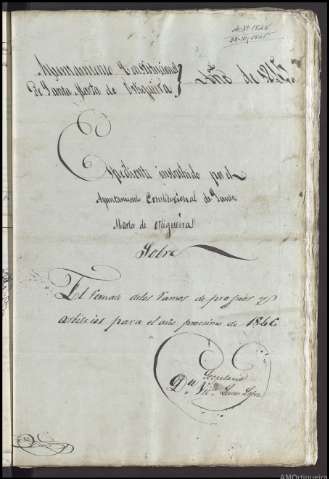 Ayuntamiento Constitucional
de Santa Marta de Ortigueira
Año de 1845.
Expediente instruido por el
Ayuntamiento Constitucional de Santa
Marta de Ortigueira
Sobre
El remate de los ramos de propios y
arbitrios para el año procsimo de 1846
Secretario
AMOrtigueira